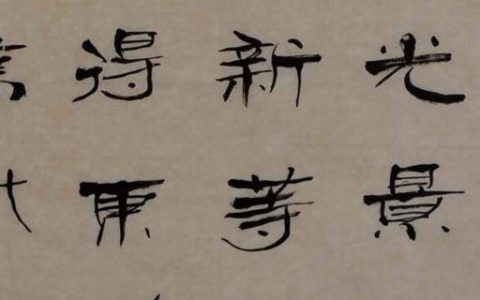 光景
新等
得東